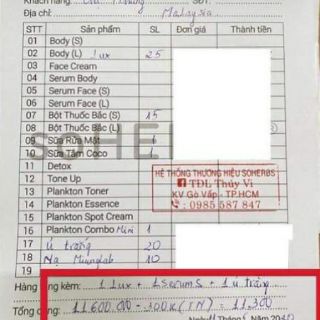 Khách hàng:
SĐT:
Địa chỉ: Malaysia
STT Sản phẩm SL Đơn giá Thành tiền
01 Body (S)
02 Body (L) lux 25
03 Face Cream
04 Serum Body
05 Serum Face (S)
06 Serum Face (L)
07 Bột Thuốc Bắc (S) 15
08 Bột Thuốc Bắc (L)
09 Sữa Rửa Mặt
10 Sữa Tắm Coco
11 Detox
12 Tone Up
13 Plankton Toner
14 Plankton Essence
15 Plankton Spot Cream
16 Plankton Combo Mini 1
17 Ủ trắng 20
18 10
19
HỆ THỐNG THƯƠNG HIỆU SOHERBS
TĐL Thúy Vi
KV Gò Vấp - TP.HCM
: 0985 587 847
Hàng tặng kèm: 1 lux + 1 serum S + 1 ủ trắng
Tổng cộng: 11.600.000 - 300K (TN) = 11.300